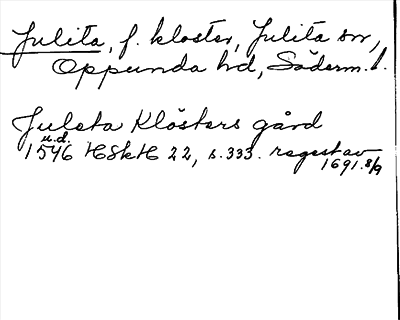 Julita, f. kloster, Julita sn,
Oppunda hd, Söderm. l.
Juleta Klösters gård
u.d.
1546 HSkH 22, s. 333. regest av
1691.8/9